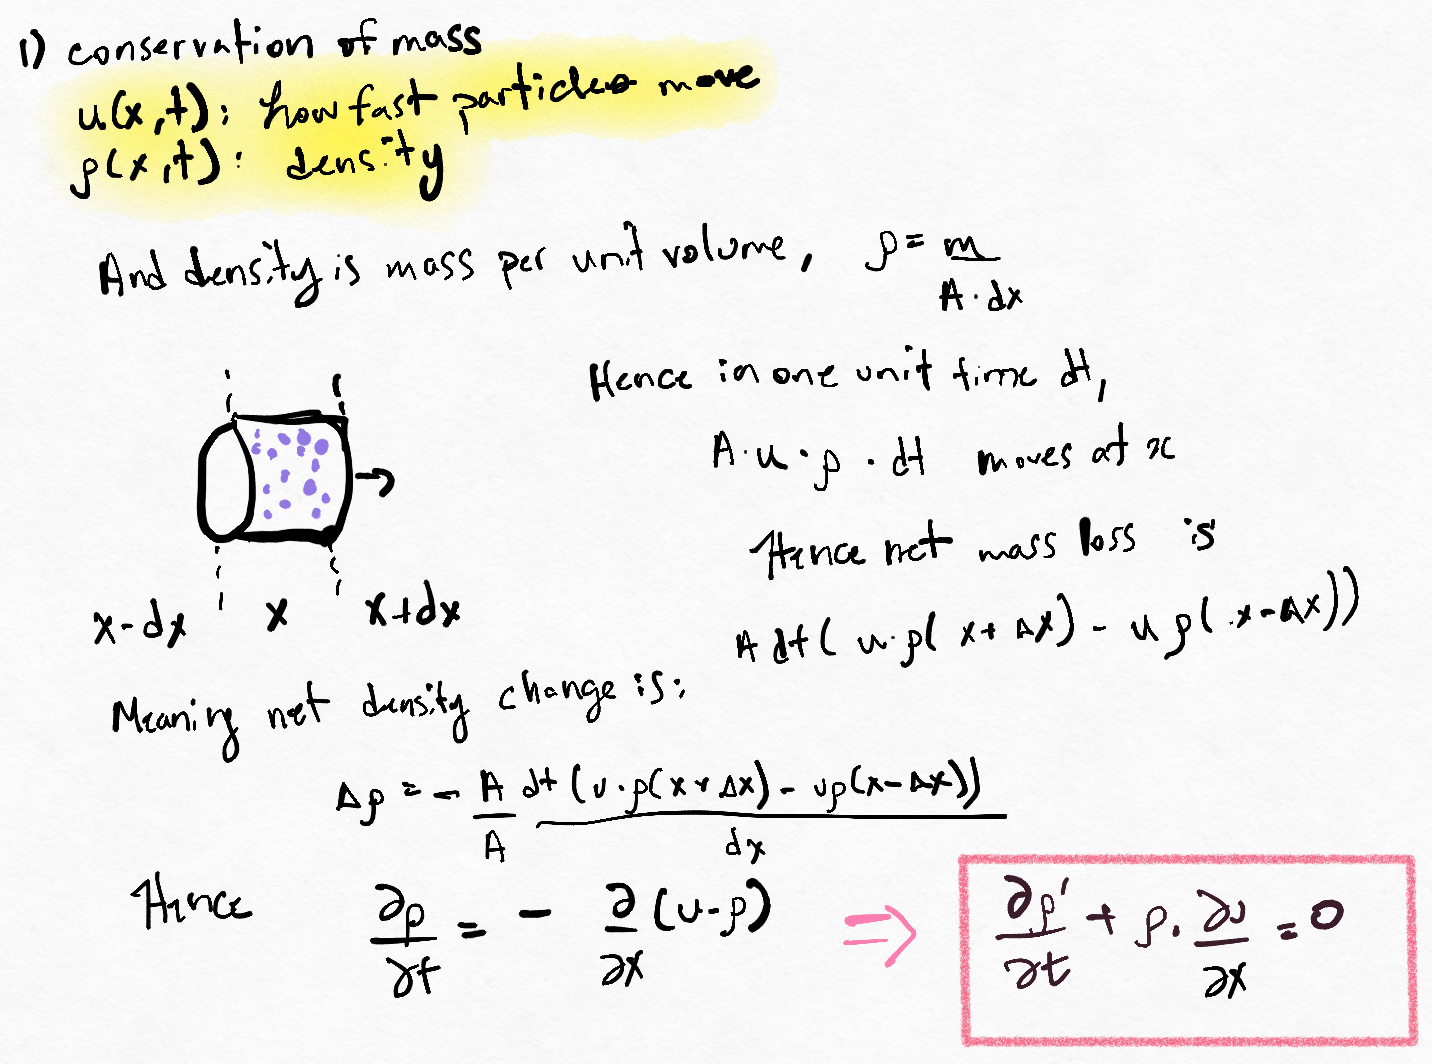 1) conservation of mass
u(x,t): how fast particles move
ρ(x,t): density
And density is mass per unit volume, ρ = m / A·dx
Hence in one unit time dt,
A·u·ρ·dt moves at x
Hence net mass loss is
A dt( u·ρ( x+Δx) - uρ( x-Δx))
x-dx x x+dx
Meaning net density change is:
Δρ = - A/A dt (u·ρ(x+Δx) - uρ(x-Δx)) / dx
Hence ∂ρ/∂t = - ∂/∂x (u·ρ) ⇒ ∂ρ'/∂t + ρ·∂u/∂x = 0